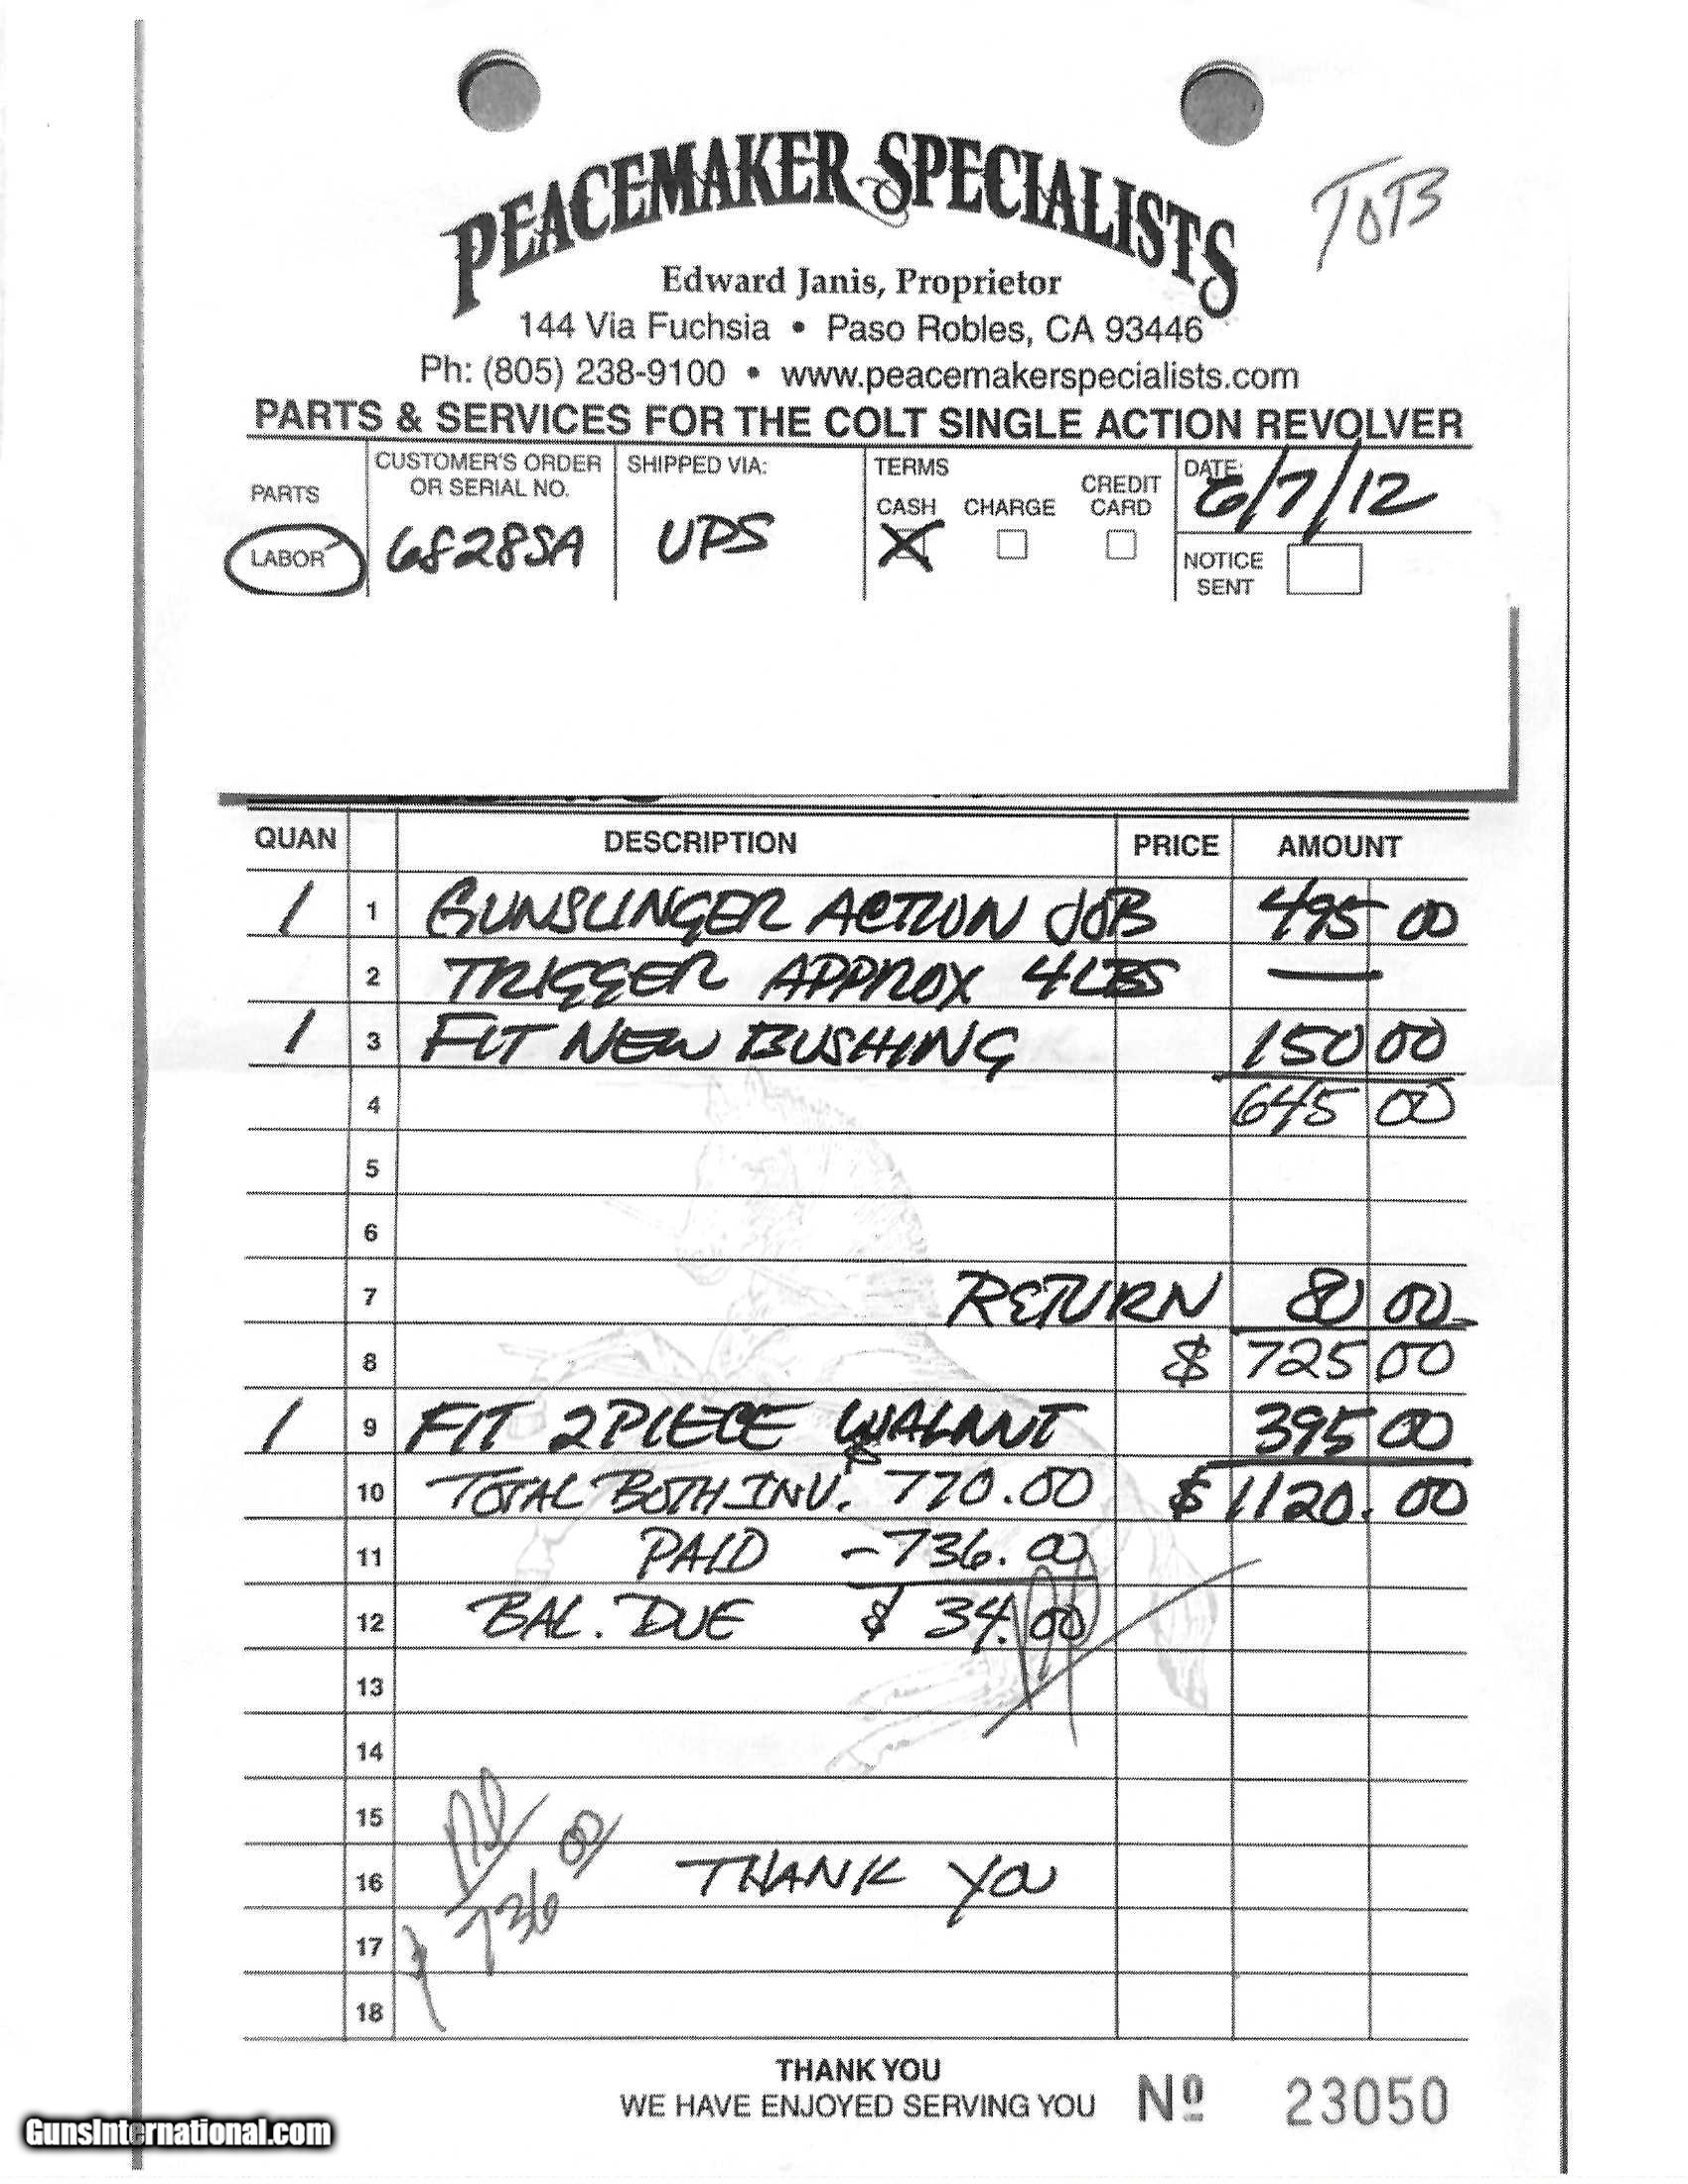 ToTB
PEACEMAKER SPECIALISTS
Edward Janis, Proprietor
144 Via Fuchsia • Paso Robles, CA 93446
Ph: (805) 238-9100 • www.peacemakerspecialists.com
PARTS & SERVICES FOR THE COLT SINGLE ACTION REVOLVER
PARTS
LABOR
CUSTOMER'S ORDER
OR SERIAL NO.
68285A
SHIPPED VIA:
UPS
TERMS
CASH CHARGE CREDIT CARD
X
DATE: 6/7/12
NOTICE
SENT
QUAN DESCRIPTION PRICE AMOUNT
1 1 GUNSLINGER ACTION JOB 495 00
2 TRIGGER APPROX 4 LBS —
1 3 FIT NEW BUSHING 150 00
4 645 00
5
6
7 RETURN 80 00
8 $ 725 00
1 9 FIT 2 PIECE WALNUT 395 00
10 TOTAL BOTH INV. $ 770.00 $ 1120.00
11 PAID -736.00
12 BAL. DUE $ 34.00
13
14
15
16 THANK YOU
17 $ 736 00
18
THANK YOU
WE HAVE ENJOYED SERVING YOU
Nº 23050
GunsInternational.com